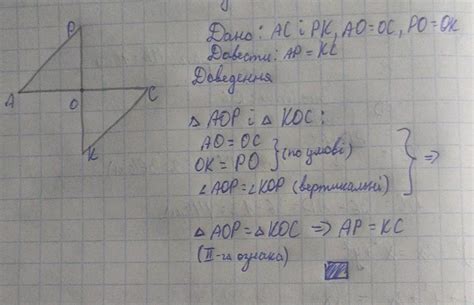 Дано: AC і PK, AO=OC, PO=OK
Довести: AP=KC
Доведення
P
A O C
K
△ AOP і △ KOC:
AO=OC
OK=PO } (по умові)
∠AOP=∠KOP (вертикальні) } ⇒
△ AOP=△ KOC ⇒ AP=KC
(II-га ознака)